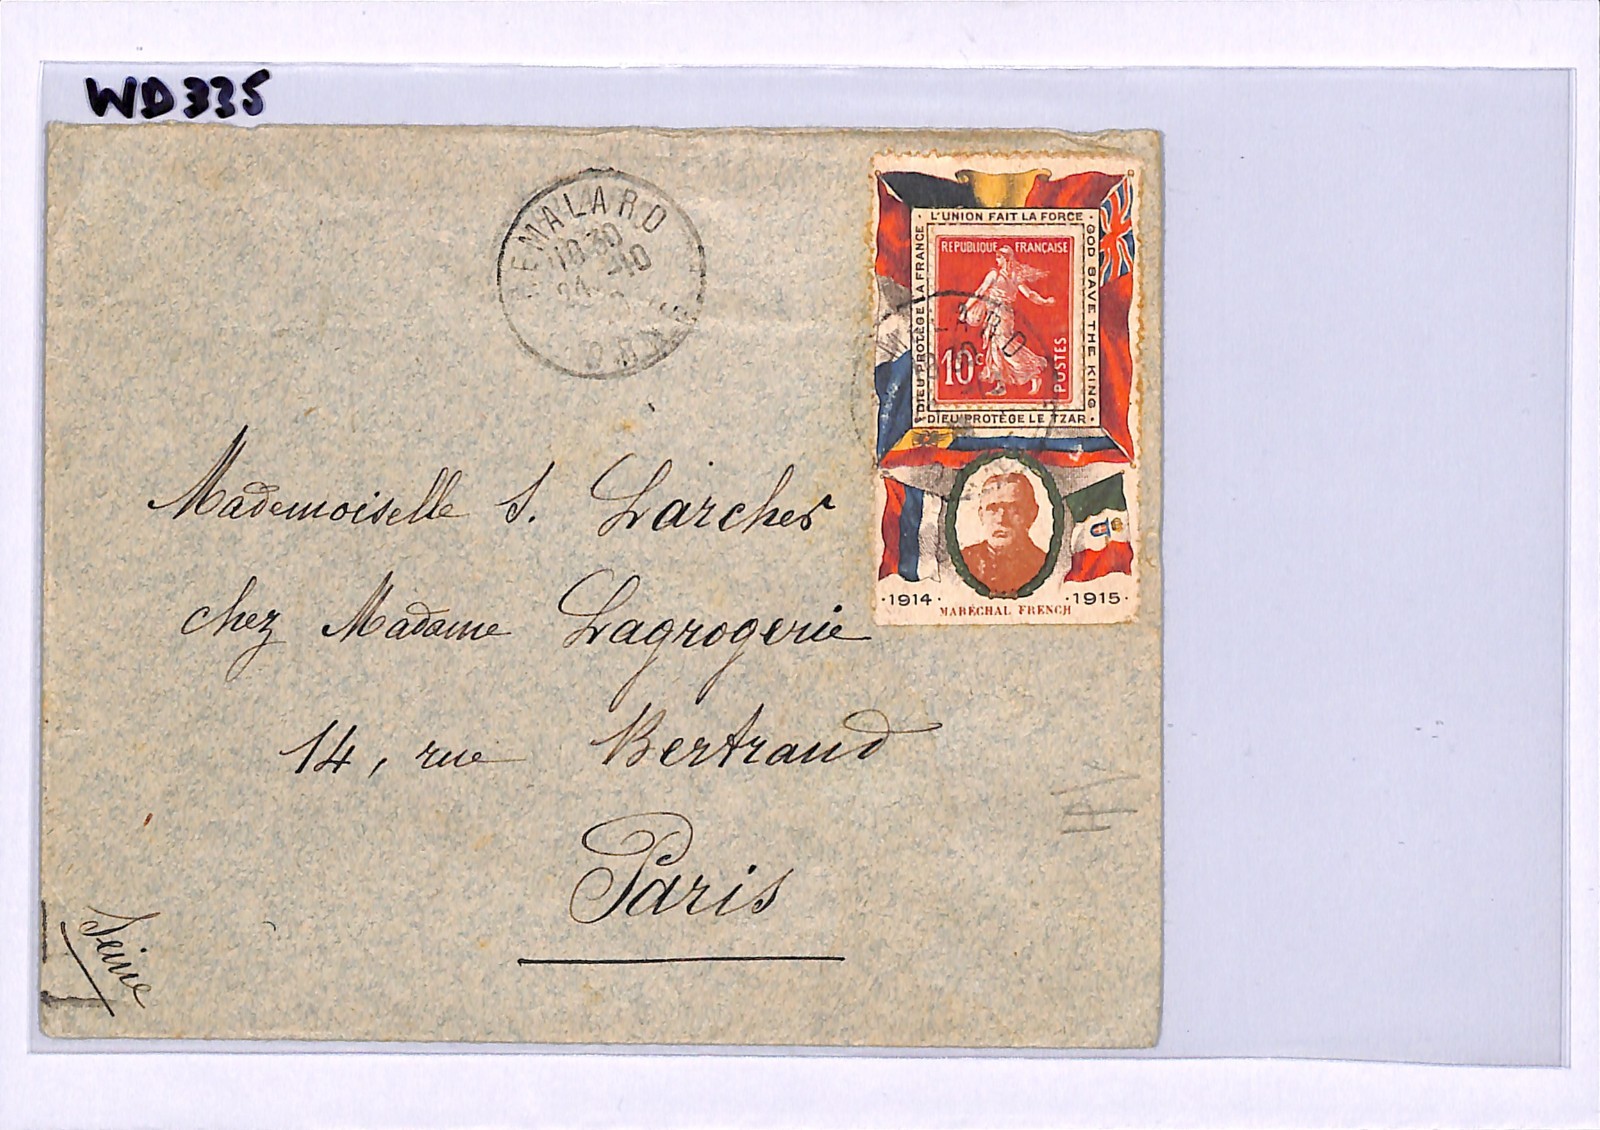 WD335
REMALARD
18 30
24 -10
ORNE
· L'UNION FAIT LA FORCE ·
GOD SAVE THE KING ·
DIEU PROTÈGE LA FRANCE
DIEU PROTÈGE LE TZAR ·
REPUBLIQUE FRANÇAISE
10c
POSTES
·1914· ·1915·
MARÉCHAL FRENCH
Mademoiselle S. Larcher
chez Madame Lagrogerie
14, rue Bertrand
Paris
Seine